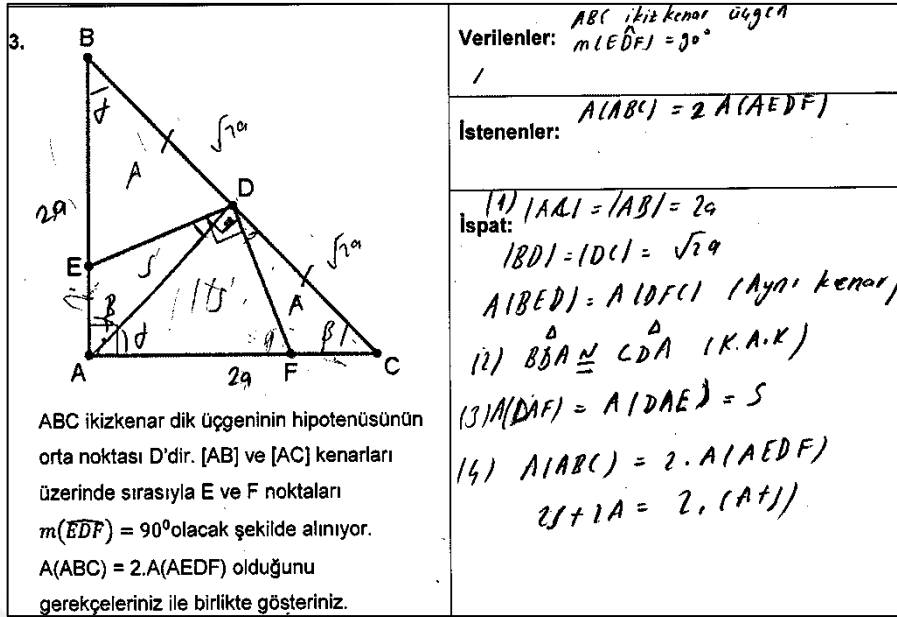 3.
B
√2a
A
D
2a
√2a
E
S
A
B
β
A
F
C
2a
ABC ikizkenar dik üçgeninin hipotenüsünün
orta noktası D'dir. [AB] ve [AC] kenarları
üzerinde sırasıyla E ve F noktaları
m(EDF) = 90⁰olacak şekilde alınıyor.
A(ABC) = 2.A(AEDF) olduğunu
gerekçeleriniz ile birlikte gösteriniz.
Verilenler: ABC ikizkenar üçgen
m(EDF) = 90°
İstenenler: A(ABC) = 2 A(AEDF)
İspat: (1) |AC| = |AB| = 2a
|BD| = |DC| = √2a
A(BED) = A(DFC) (Aynı kenar)
(2) BDA ≅ CDA (K.A.K)
(3) A(DAF) = A(DAE) = S
(4) A(ABC) = 2.A(AEDF)
2S+2A = 2.(A+S)